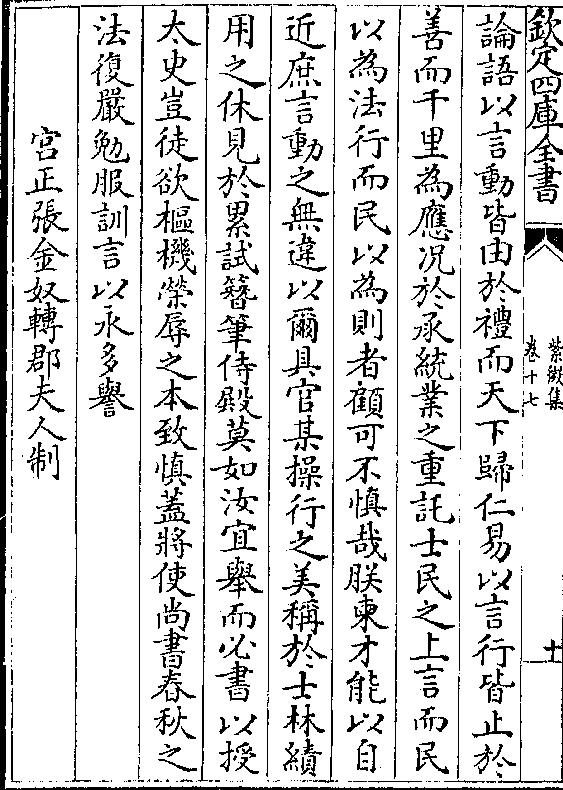 欽定四庫全書
紫微集
卷十七
十
論語以言動皆由於禮而天下歸仁易以言行皆止於
善而千里為應况於承統業之重託士民之上言而民
以為法行而民以為則者顧可不慎哉朕柬才能以自
近庶言動之無違以爾具官某操行之美稱於士林績
用之休見於累試簪筆侍殿莫如汝宜舉而必書以授
太史豈徒欲樞機榮辱之本致慎蓋將使尚書春秋之
法復嚴勉服訓言以永多譽
宫正張金奴轉郡夫人制